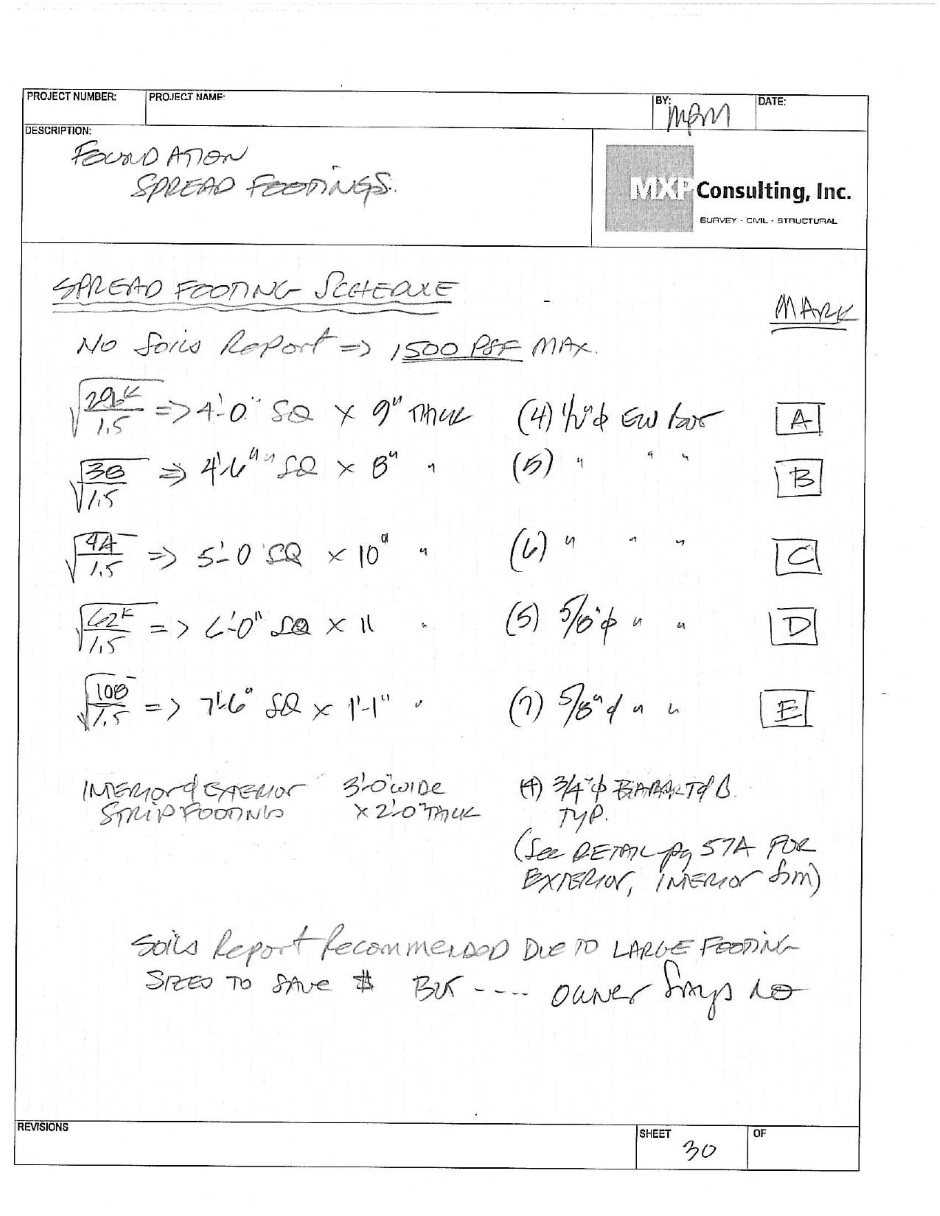 PROJECT NUMBER: PROJECT NAME: BY: MPM DATE:
DESCRIPTION:
FOUNDATION
SPREAD FOOTINGS.
MXP Consulting, Inc.
SURVEY · CIVIL · STRUCTURAL
SPREAD FOOTING SCHEDULE
MARK
NO Soils Report => 1500 PSF MAX.
√ /1.5 => 4'-0" SQ × 9" THICK (4) 1/2"φ EW BOT A
√38/1.5 => 4'-6" SQ × 8" " (5) " " " B
√44/1.5 => 5'-0 SQ × 10" " (6) " " " C
√62K/1.5 => 6'-0" SQ × 11 " (5) 5/8"φ " " D
√108/1.5 => 7'-6" SQ × 1'-1" " (7) 5/8"φ " " E
INTERIOR & EXTERIOR 3'-0" WIDE (4) 3/4"φ T & B.
STRIP FOOTINGS × 2'-0" THICK TYP.
(See DETAIL pg 57A FOR
EXTERIOR, INTERIOR SIM)
Soils Report Recommended DUE TO LARGE FOOTING
SIZES TO SAVE $ BUT ---- OWNER SAYS NO
REVISIONS SHEET 30 OF